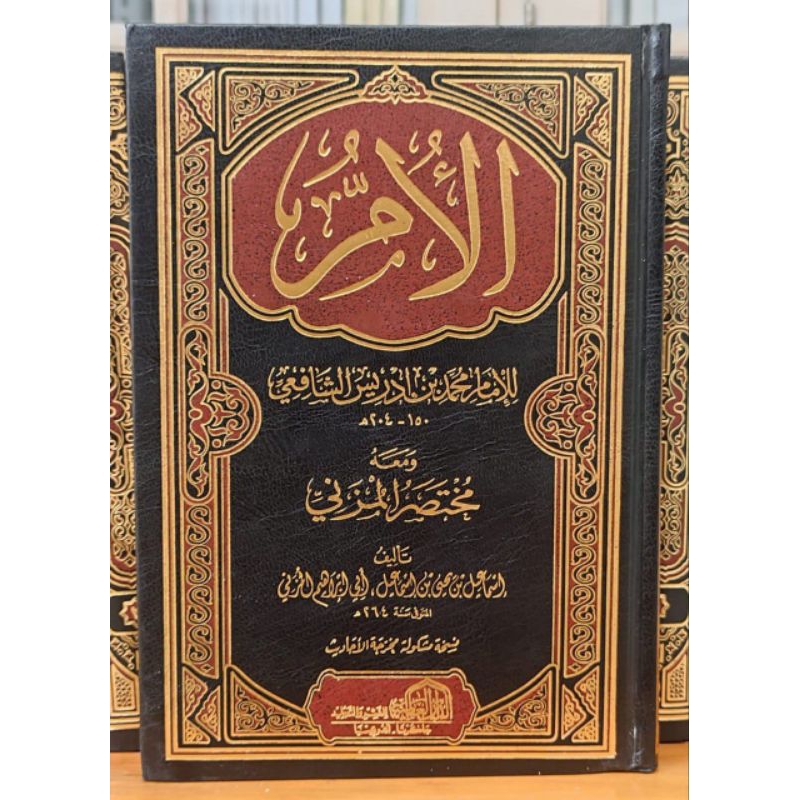 الأُمُّ
للإمام محمد بن إدريس الشافعي
١٥٠ - ٢٠٤هـ
وَمَعَهُ
مُختَصَرُ المُزَنيِّ
تأليف
إسماعيل بن يحيى بن إسماعيل، أبي إبراهيم المزني
المتوفى سنة ٢٦٤هـ
نسخة مشكولة مخرجة الأحاديث
للنشر والتوزيع